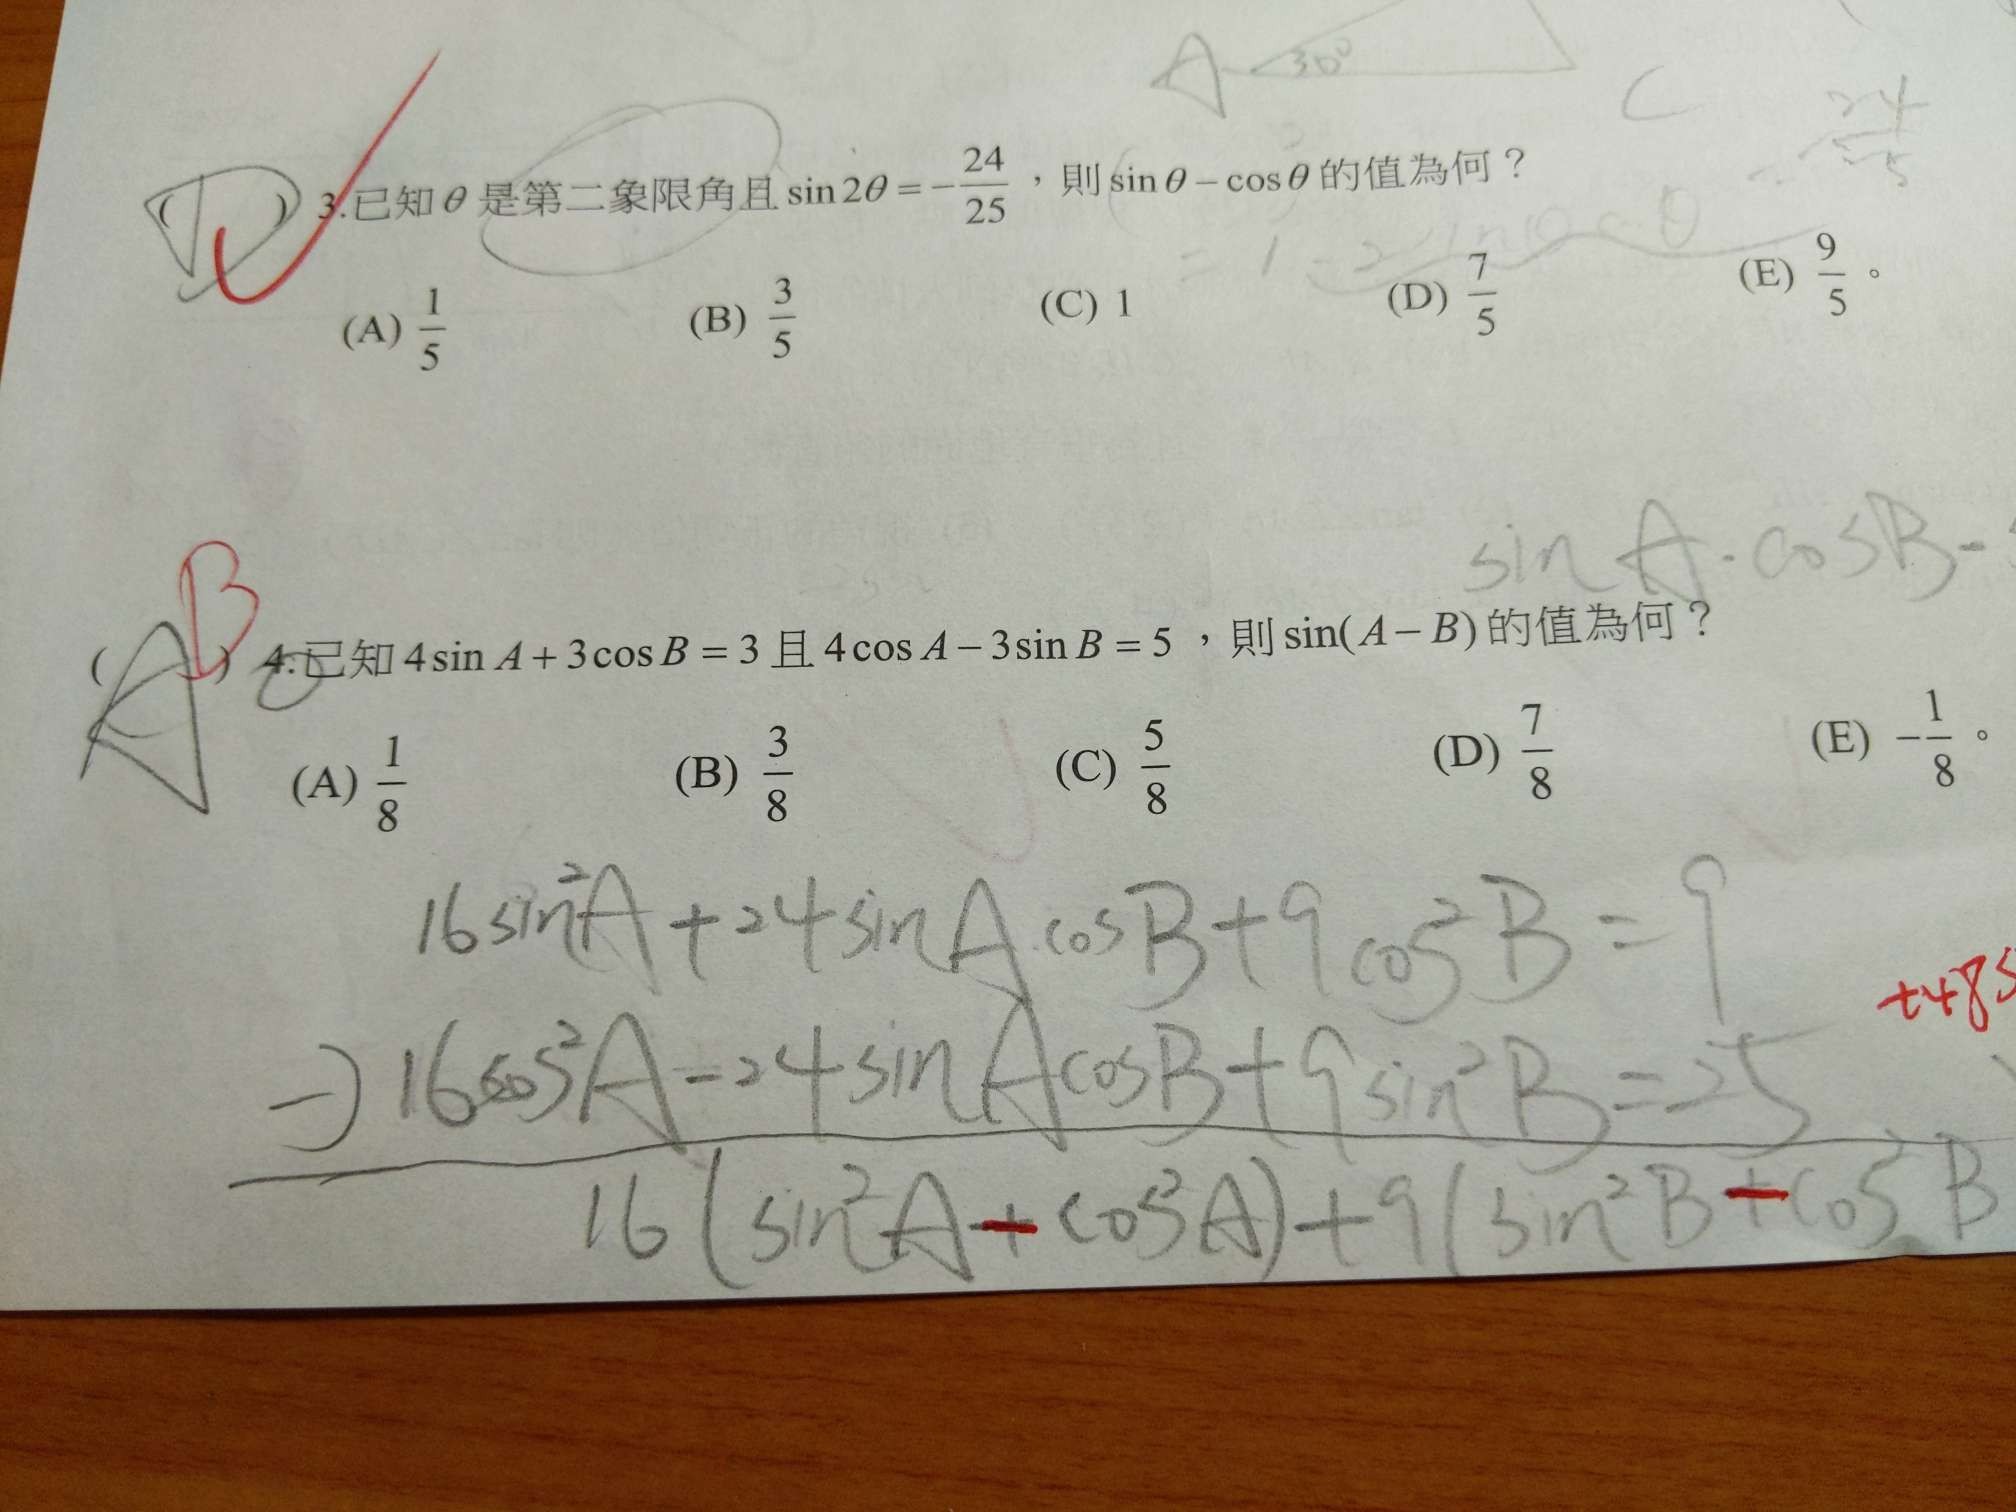 A 30° C 24
( D ) 3.已知θ是第二象限角且 sin2θ = -24/25，則 sinθ - cosθ 的值為何？
= 1 - 2 sinθ
(A) 1/5 (B) 3/5 (C) 1 (D) 7/5 (E) 9/5。
sin A · cos B -
B
( A ) 4.已知 4sin A + 3cos B = 3 且 4cos A - 3sin B = 5，則 sin(A - B) 的值為何？
(A) 1/8 (B) 3/8 (C) 5/8 (D) 7/8 (E) -1/8。
16 sin²A + 24 sin A cos B + 9 cos²B = 9
+48
-) 16 cos²A - 24 sin A cos B + 9 sin²B = 25
16 (sin²A + cos²A) + 9 (sin²B + cos²B